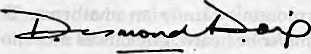 Desmond Doig